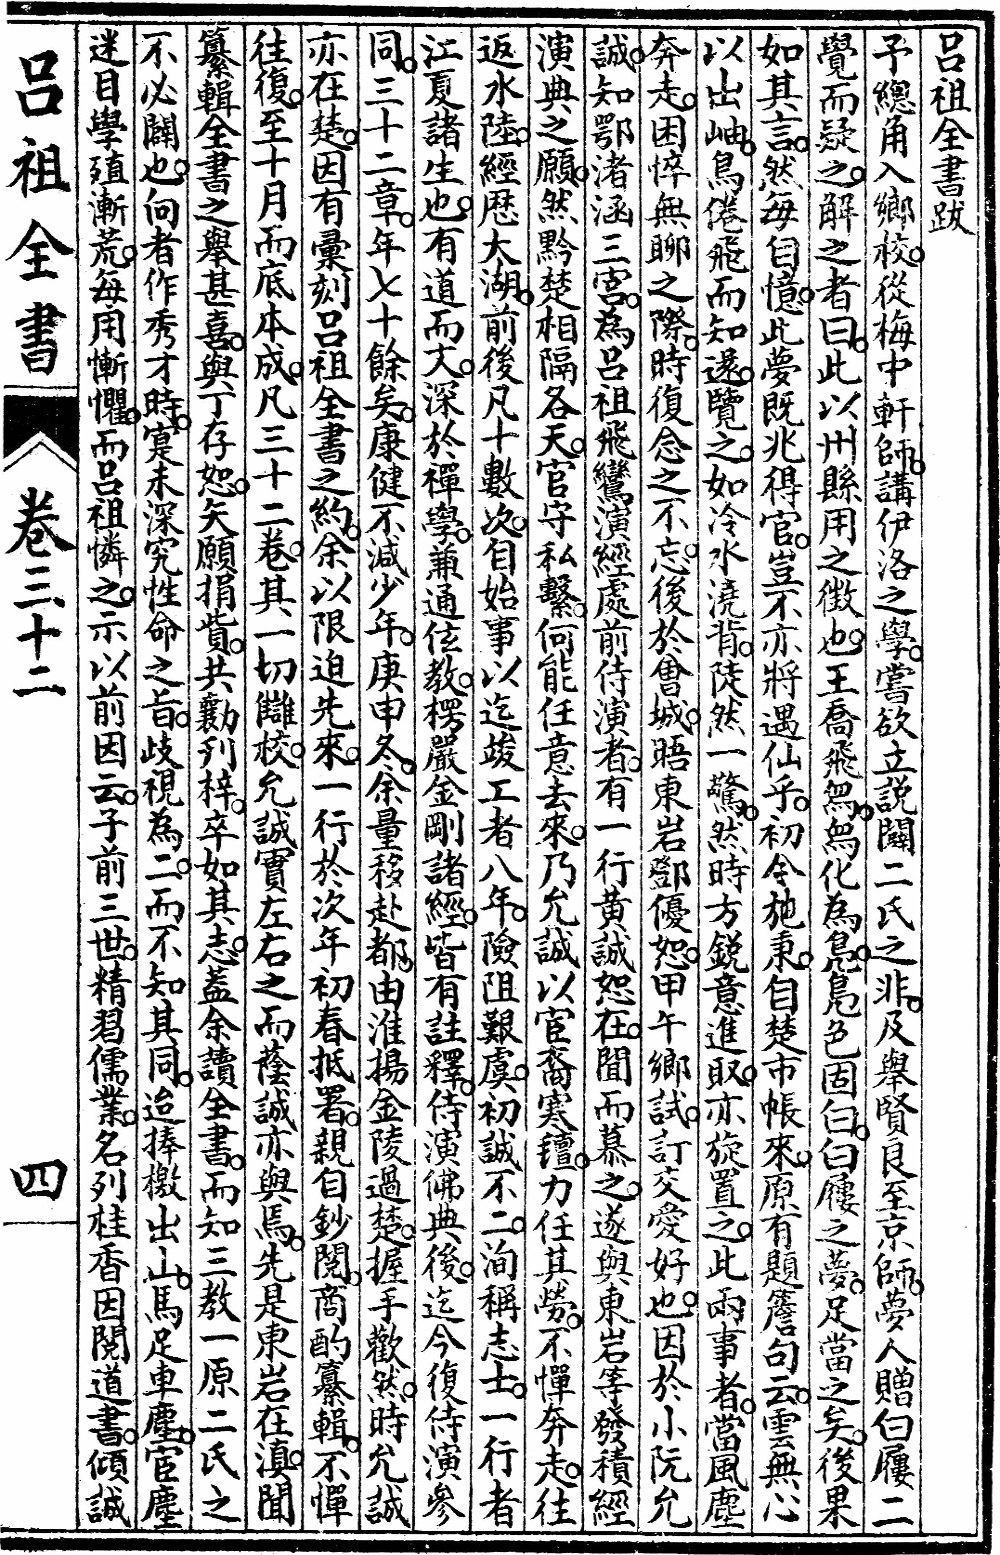 呂祖全書跋
予總角入鄉校從梅中軒師講伊洛之學嘗欲立説闢二氏之非及舉賢良至京師夢人贈白屨二
覺而疑之解之者曰此以州縣用之徴也王喬飛舄舄化為鳧鳧色固白白屨之夢足當之矣後果
如其言然每自憶此夢既兆得官豈不亦將遇仙乎初令施秉自楚市帳來原有題簷句云雲無心
以出岫鳥倦飛而知還覽之如冷水澆背陡然一驚然時方鋭意進取亦旋置之此兩事者當風塵
奔走困悴無聊之際時復念之不忘後於會城晤東岩鄧優恕甲午鄉試訂交愛好也因於小阮允
誠知鄂渚涵三宮為呂祖飛鸞演經處前侍演者有一行黃誠恕在聞而慕之遂與東岩等發積經
演典之願然黔楚相隔各天官守私繫何能任意去來乃允誠以宦裔寒氊力任其勞不憚奔走往
返水陸經歴大湖前後凡十數次自始事以迄竣工者八年險阻艱虞初誠不二洵稱志士一行者
江夏諸生也有道而文深於禪學兼通伭教楞嚴金剛諸經皆有註釋侍演佛典後迄今復侍演參
同三十二章年七十餘矣康健不減少年庚申冬余量移赴都由淮揚金陵過楚握手歡然時允誠
亦在楚因有彙刻呂祖全書之約余以限迫先來一行於次年初春抵署親自鈔閱商酌纂輯不憚
往復至十月而底本成凡三十二卷其一切讎校允誠實左右之而蔭誠亦與焉先是東岩在滇聞
纂輯全書之舉甚喜與丁存恕矢願捐貲共勷列梓卒如其志蓋余讀全書而知三教一原二氏之
不必闢也向者作秀才時寔未深究性命之旨歧視為二而不知其同迨捧檄出山馬足車塵宦塵
迷目學殖漸荒每用慚懼而呂祖憐之示以前因云予前三世精習儒業名列桂香因閱道書傾誠
呂祖全書
卷三十二
四